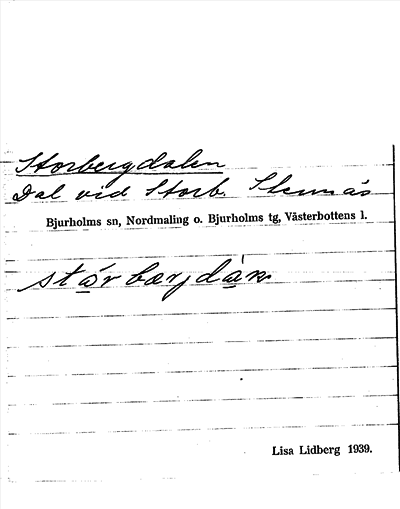 Storbergdalen
Dal vid Storb. Stennäs
Bjurholms sn, Nordmaling o. Bjurholms tg, Västerbottens l.
Lisa Lidberg 1939.